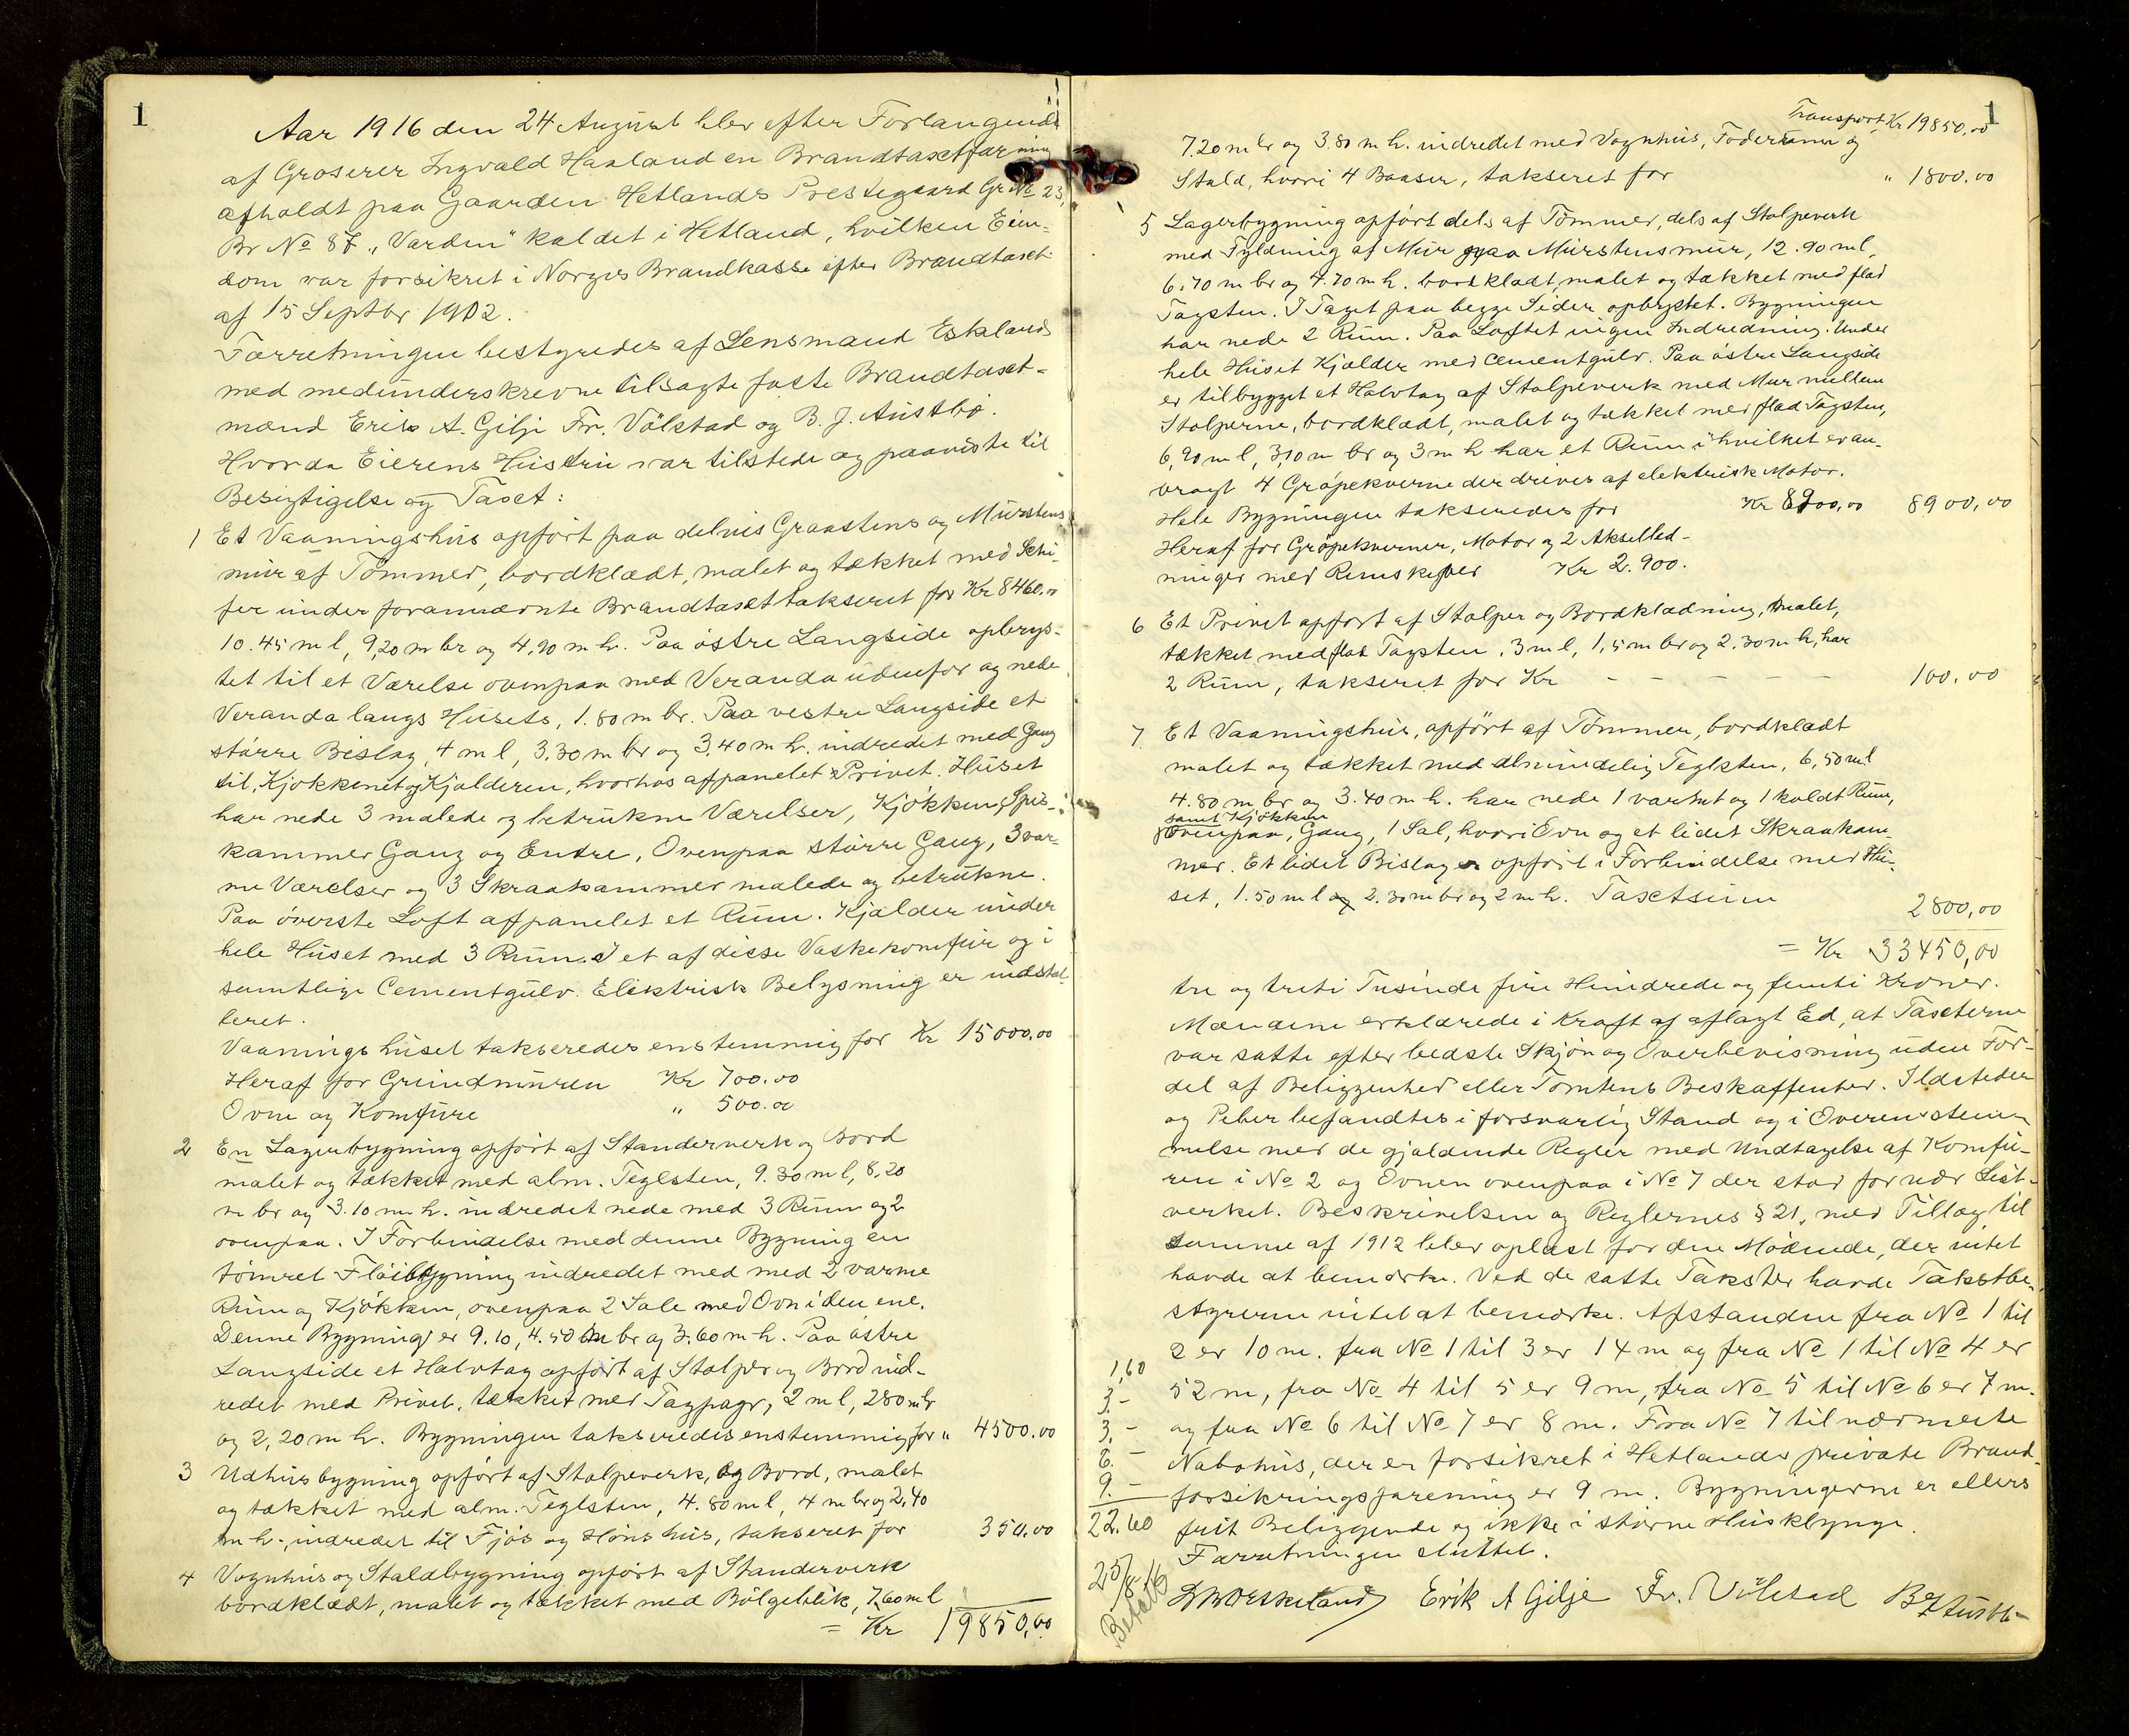 1
Aar 1916 den 24 August blev efter Forlangende
af Groserer Ingvald Haaland en Brandtaxtforretning
afholdt paa Gaarden Hetlands Prestegaard Gr № 23,
Br № 87 „Varden" kaldet i Hetland, hvilken Eien-
dom var forsikret i Norges Brandkasse efter Brandtaxt
af 15 Septbr 1902.
Forretningen bestyredes af Lensmand Eskeland
med medunderskrevne tilsagte faste Brandtaxt-
mænd Erik A. Gilje Fr. Vølstad og B. J. Austbø.
Hvorda Eierens Hustru var tilstede og paaviste til
Besigtigelse og Taxt:
1 Et Vaaningshus opført paa delvis Graastens og Murstens
mur af Tømmer, bordklædt, malet og tækket med Ski-
fer under forannævnte Brandtaxt takseret for Kr 8460.00
10.45 m l, 9,20 m br og 4,90 m h. Paa østre Langside opbrys-
tet til et Værelse ovenpaa med Veranda udenfor og nede
Veranda langs Husets, 1.80 m br. Paa vestre Langside et
større Bislag, 4 m l, 3,30 m br og 3.40 m h. indredet med Gang
til Kjøkkenet og Kjælderen, hvorhos afpanelet Privet. Huset
har nede 3 malede og betrukne Værelser, Kjøkken, Spis-
kammer Gang og Entre, Ovenpaa større Gang, 3 var-
me Værelser og 3 Skraakammer malede og betrukne.
Paa øverste Loft afpanelet et Rum. Kjælder under
hele Huset med 3 Rum. I et af disse Vaskekomfur og i
samtlige Cementgulv. Elektrisk Belysning er indstal-
leret.
Vaaningshuset takseredes enstemmig for Kr 15000.00
Heraf for Grundmuren Kr 700.00
Ovne og Komfure " 500.00
2 En Lagerbygning opført af Standerverk og Bord
malet og tækket med alm. Teglsten, 9.30 m l, 8,20
m br og 3.10 m h. indredet nede med 3 Rum og 2
ovenpaa. I Forbindelse med denne Bygning en
tømret Fløibygning indredet med med 2 varme
Rum og Kjøkken, ovenpaa 2 Sale med Ovn i den ene.
Denne Bygning er 9.10, 4.50 m br og 3.60 m h. Paa østre
Langside et Halvtag opført af Stolper og Bord ind-
redet med Privet, tækket med Tagpapr, 2 m l, 280 m br
og 2,20 m h. Bygningen takseredes enstemmig for " 4500.00
3 Udhusbygning opført af Stolpeverk, og Bord, malet
og tækket med alm. Teglsten, 4.80 m l, 4 m br og 2,40
m h., indredet til Fjøs og Hønshus, takseret for 350.00
4 Vognhus og Staldbygning opført af Standerverk
bordklædt, malet og tækket med Bølgeblik, 7,60 m l "
= Kr 19850,00
1
Transport, Kr 19850,00
7.20 m br og 3.80 m h. indredet med Vognhus, Foderrum og
Stald, hvori 4 Baaser, takseret for " 1800.00
5 Lagerbygning opført dels af Tømmer, dels af Stolpeverk
med Fyldning af Mur paa Murstensmur, 12.90 m l,
6.70 m br og 4.70 m h. bordklædt, malet og tækket med flad
Tagsten. I Taget paa begge Sider opbrystet. Bygningen
har nede 2 Rum. Paa Loftet ingen Indredning. Under
hele Huset Kjælder med Cementgulv. Paa østre Langside
er tilbygget et Halvtag af Stolpeverk med Mur mellem
Stolperne, bordklædt, malet og tækket med flad Tagsten,
6,90 m l, 3,10 m br og 3 m h har et Rum i hvilket er an-
bragt 4 Grøpekverne der drives af elektrisk Motor.
Hele Bygningen takseredes for Kr 8900,00 8900,00
Heraf for Grøpekverner, Motor og 2 Akselled-
ninger med Remskiver Kr 2.900.
6 Et Privet opført af Stolper og Bordklædning, malet,
tækket med flat Tagsten, 3 m l, 1,5 m br og 2.30 m h, har
2 Rum, takseret for Kr - - - - - 100.00
7 Et Vaaningshus, opført af Tømmer, bordklædt
malet og tækket med almindelig Teglsten, 6,50 m l
4.80 m br og 3.40 m h. har nede 1 varmt og 1 koldt Rum,
samt Kjøkken
ovenpaa, Gang, 1 Sal, hvori Ovn og et lidet Skraakam-
mer. Et lidet Bislag er opført i Forbindelse med Hu-
set, 1.50 m l og 2.30 m br og 2 m h. Taxtsum
2800,00
= Kr 33450,00
tre og treti Tusinde fire Hundrede og femti Kroner.
Mændene erklærede i Kraft af aflagt Ed, at Taxterne
var satte efter bedste Skjøn og Overbevisning uden For-
del af Beliggenhed eller Tomtens Beskaffenhed. Ildsteder
og Piber befandtes i forsvarlig Stand og i Overensstem-
melse med de gjældende Regler med Undtagelse af Komfu-
ren i № 2 og Ovnen ovenpaa i № 7 der staar for nær List-
verket. Beskrivelsen og Reglernes § 21, med Tillæg til
samme af 1912 blev oplæst for den Mødende, der intet
havde at bemærke. Ved de satte Takster havde Takstbe-
styreren intet at bemærke. Afstanden fra № 1 til
2 er 10 m. fra № 1 til 3 er 14 m og fra № 1 til № 4 er
52 m, fra № 4 til 5 er 9 m, fra № 5 til № 6 er 7 m.
og fra № 6 til № 7 er 8 m. Fra № 7 til nærmeste
Nabohus, der er forsikret i Hetlands private Brand-
forsikringsforening er 9 m. Bygningerne er ellers
frit Beliggende og ikke i større Husklynge.
Forretningen sluttet.
1,60
3.-
3.-
6.-
9.-
22.60
25/8 16
Betalt
Eskeland Erik A Gilje Fr. Vølstad B J Austbø